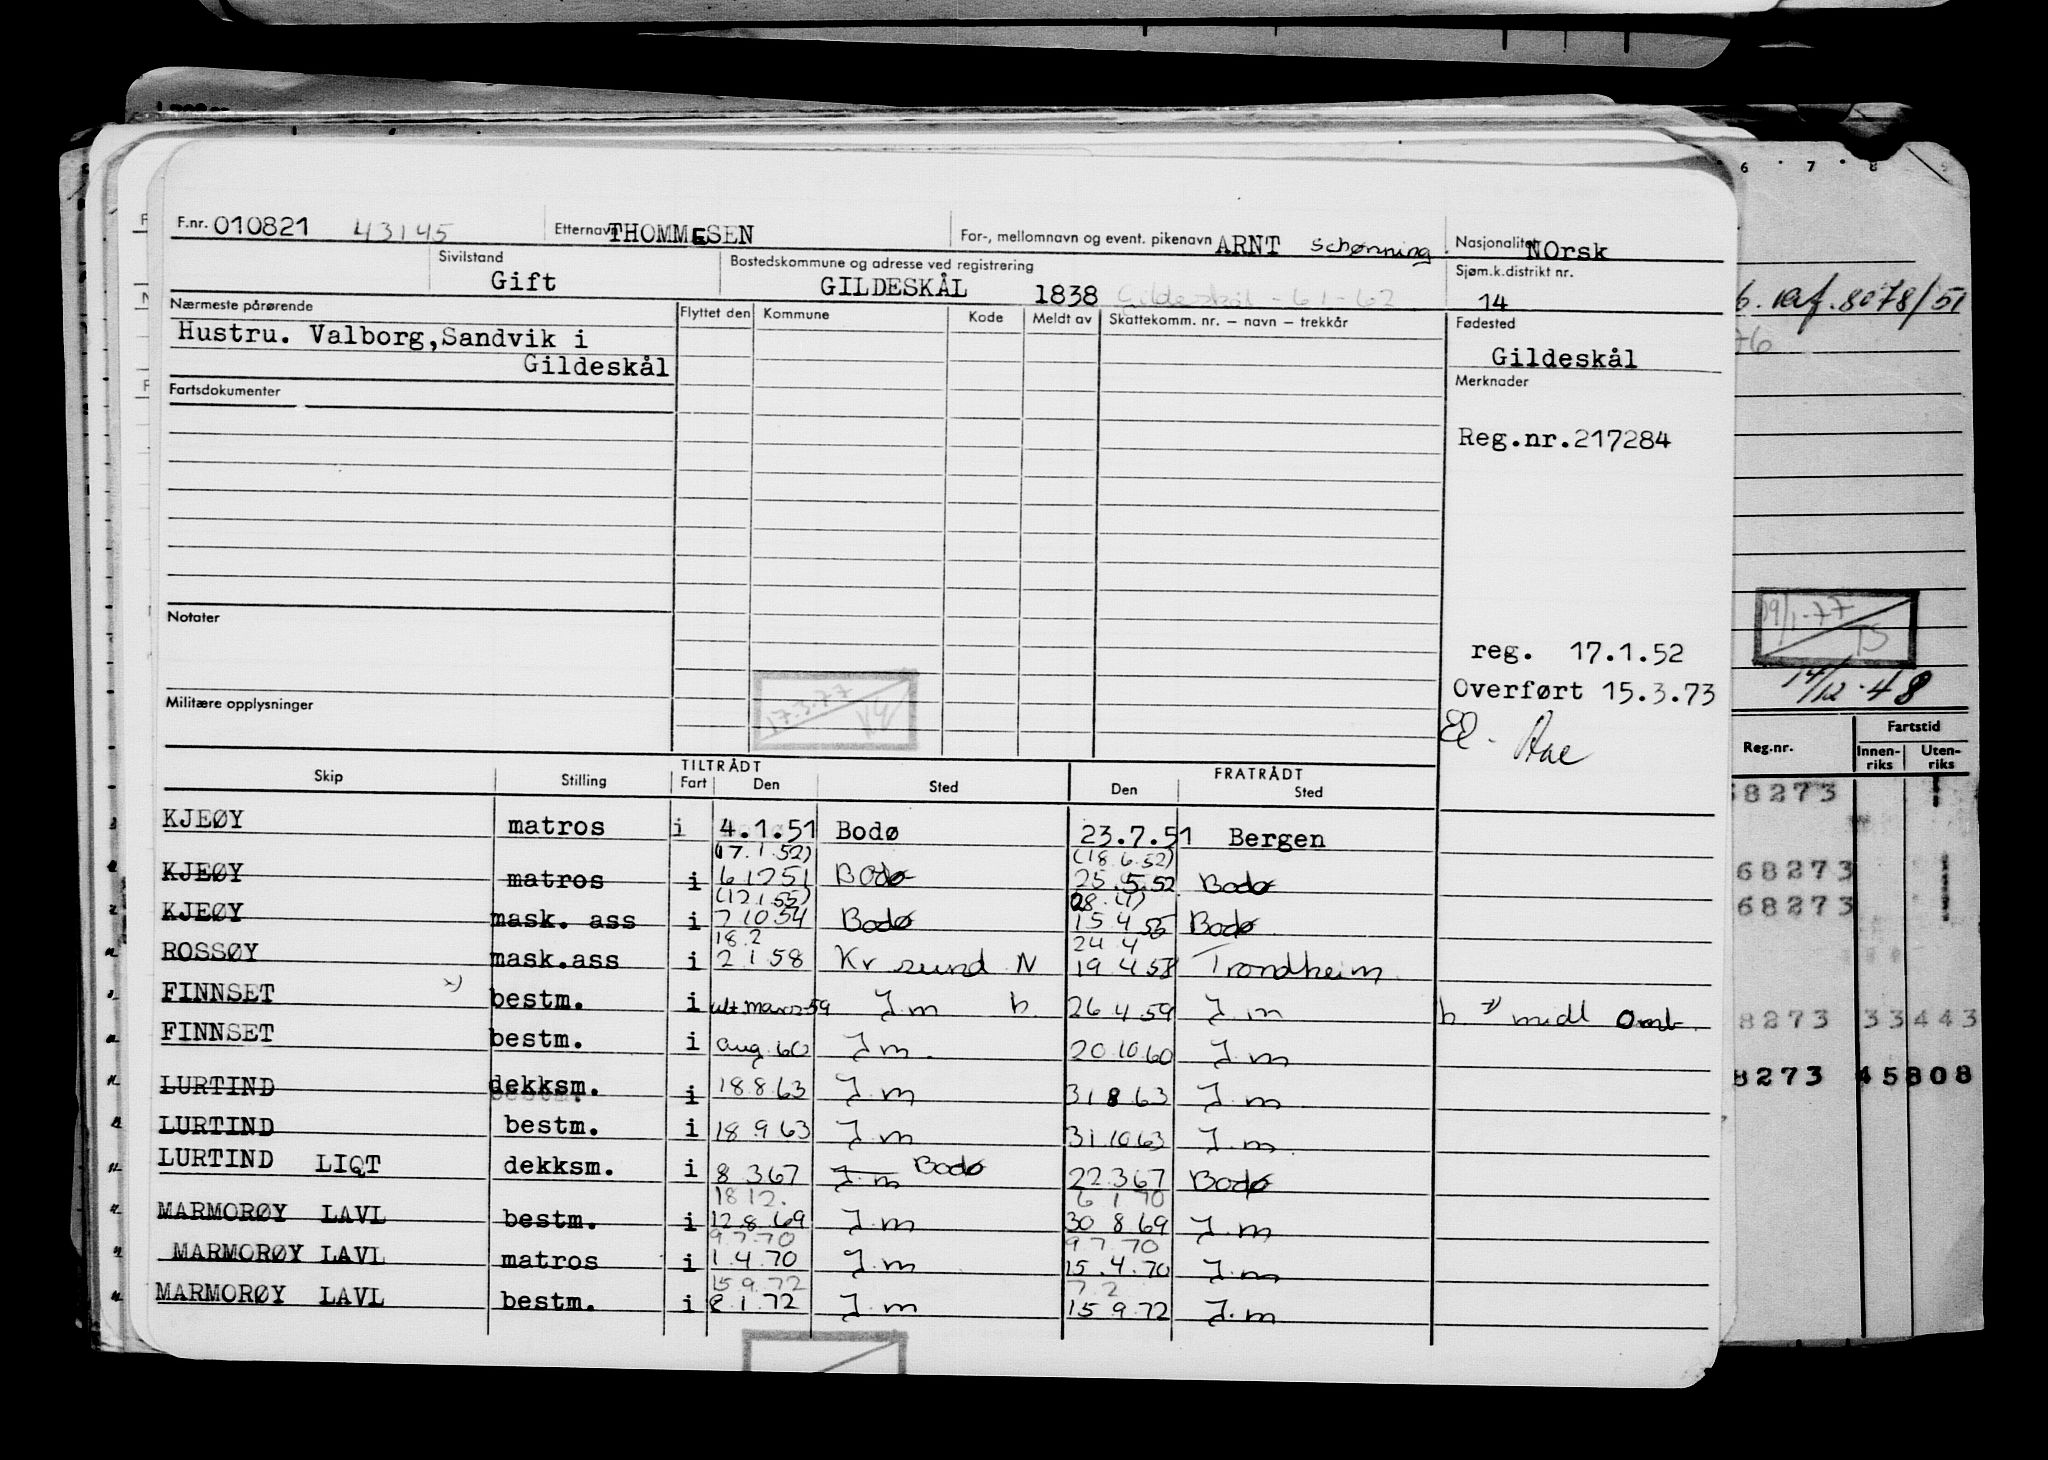 F.nr. 010821 43145 Etternavn THOMMESEN For-, mellomnavn og event. pikenavn ARNT Schønning. Nasjonalitet NOrsk
Sivilstand Gift Bostedskommune og adresse ved registrering GILDESKÅL 1838 Gildeskål - 61-62 Sjøm.k.distrikt nr. 14
Nærmeste pårørende Flyttet den Kommune Kode Meldt av Skattekomm. nr. – navn – trekkår Fødested
Hustru. Valborg,Sandvik i
Gildeskål
Gildeskål
Fartsdokumenter
Merknader
Reg.nr.217284
Notater
reg. 17.1.52
Overført 15.3.73
Militære opplysninger
17.3.77
TILTRÅDT FRATRÅDT
Skip Stilling Fart Den Sted Den Sted
KJEØY matros i 4.1.51 Bodø 23.7.51 Bergen
(17.1.52) (18.6.52)
KJEØY matros i 6 12 51 Bodø 25.5.52 Bodø
(12.1.55)
KJEØY mask. ass i 7 10 54 Bodø 15 4 55 Bodø
18.2 24 4
ROSSØY mask.ass i 2 1 58 Kr sund N 19 4 58 Trondheim
FINNSET x) bestm. i ult mars 59 J m h 26 4 59 J m h x) midl omb.
FINNSET bestm. i aug 60 J m. 20 10 60 J. m
LURTIND dekksm. i 18 8 63 J m 31 8 63 J. m
LURTIND bestm. i 18 9 63 J. m 31 10 63 J. m
LURTIND LIQT dekksm. i 8 3 67 J m Bodø 22.3 67 Bodø
18 12. 6 1 70
MARMORØY LAVL bestm. i 12.8.69 J. m 30 8.69 J. m
9.7.70 9 7 70
MARMORØY LAVL matros i 1.4.70 J. m 15.4.70 J. m
15.9.72 7.2
MARMORØY LAVL bestm. i 8.1.72 J. m 15.9.72 J. m
6 7 8
8078/51
76
14/12-48
Reg.nr. Fartstid
Innen-riks Uten-riks
68273
68273
68273
8273 33443
8273 45808